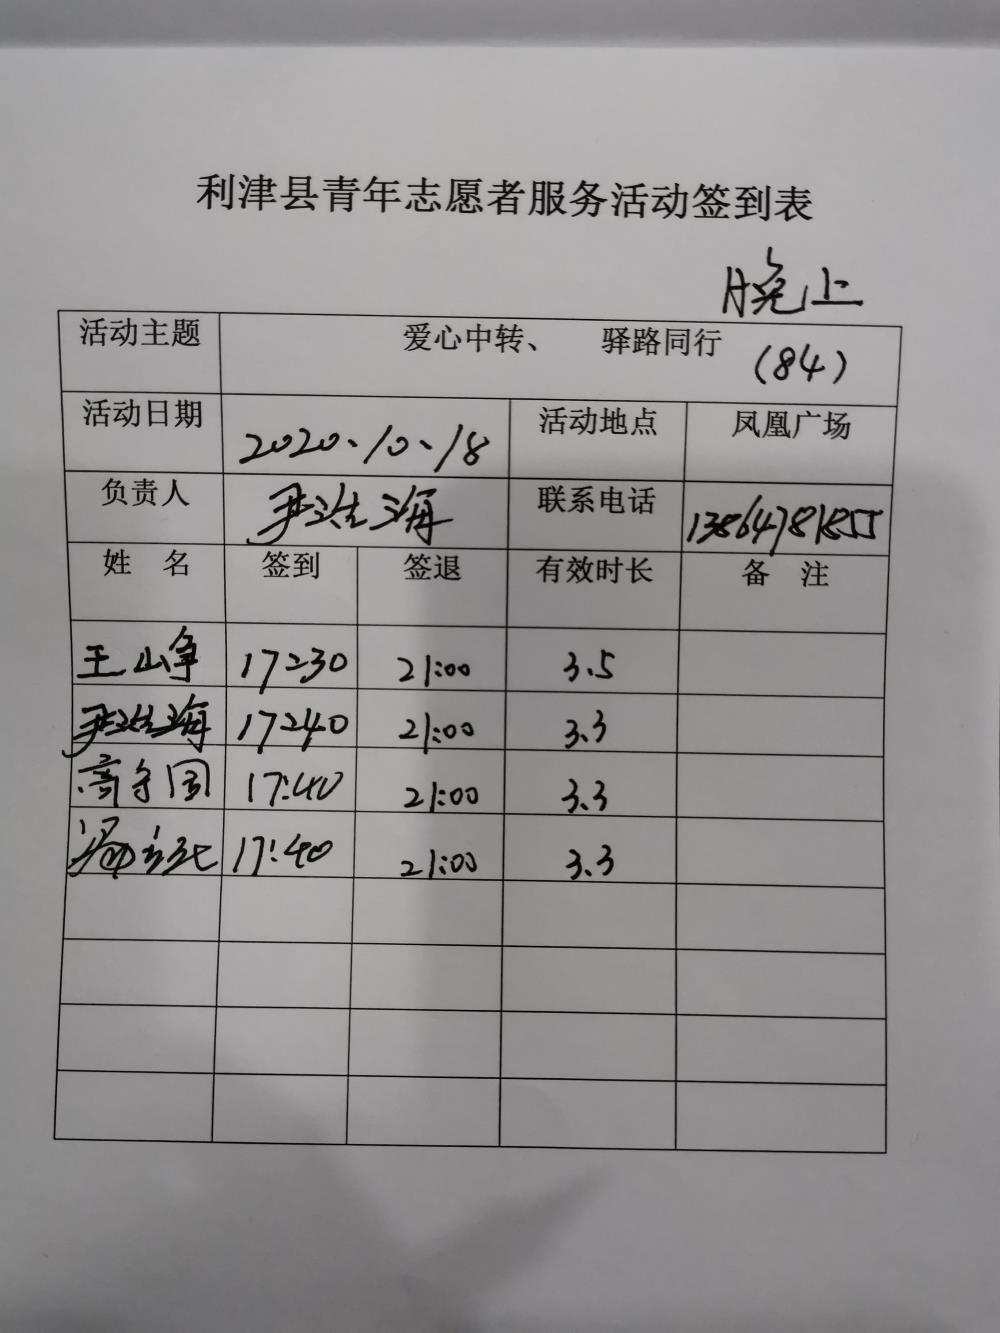 利津县青年志愿者服务活动签到表
晚上
活动主题 爱心中转、 驿路同行 (84)
活动日期 2020、10、18 活动地点 凤凰广场
负责人 尹浩海 联系电话 13864781855
姓 名 签到 签退 有效时长 备 注
王山争 17:30 21:00 3.5
尹浩海 17:40 21:00 3.3
高守国 17:40 21:00 3.3
17:40 21:00 3.3